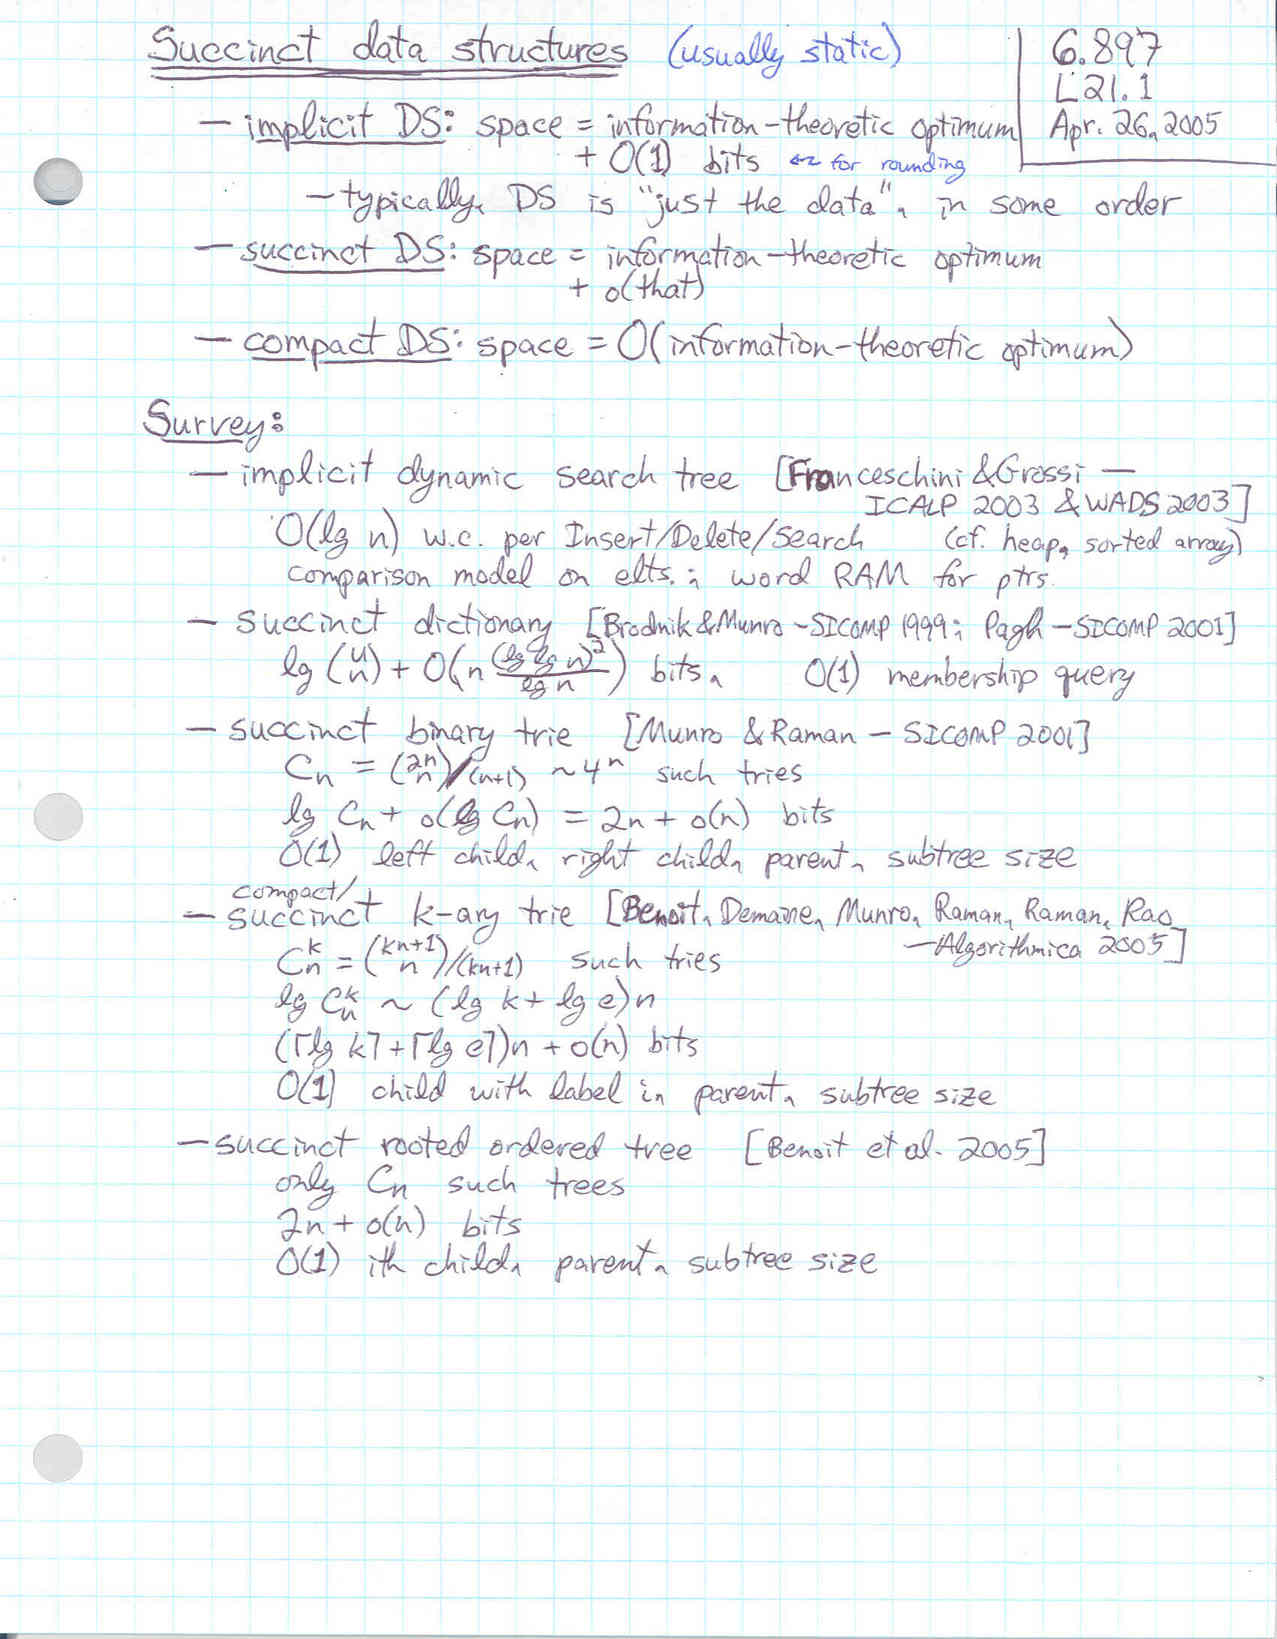 Succinct data structures (usually static)
6.897
L21.1
Apr. 26, 2005
— implicit DS: space = information-theoretic optimum
+ O(1) bits ← for rounding
— typically, DS is "just the data", in some order
— succinct DS: space = information-theoretic optimum
+ o(that)
— compact DS: space = O(information-theoretic optimum)
Survey:
— implicit dynamic search tree [Franceschini & Grossi —
ICALP 2003 & WADS 2003]
O(lg n) w.c. per Insert/Delete/Search (cf. heap, sorted array)
comparison model on elts.; word RAM for ptrs.
— succinct dictionary [Brodnik & Munro - SICOMP 1999; Pagh - SICOMP 2001]
lg (u n) + O(n (lg lg n)²/lg n) bits, O(1) membership query
— succinct binary trie [Munro & Raman — SICOMP 2001]
Cn = (2n n)/(n+1) ~4ⁿ such tries
lg Cn + o(lg Cn) = 2n + o(n) bits
O(1) left child, right child, parent, subtree size
compact/
— succinct k-ary trie [Benoit, Demaine, Munro, Raman, Raman, Rao
— Algorithmica 2005]
Cnᵏ = (kn+1 n)/(kn+1) such tries
lg Cnᵏ ~ (lg k + lg e)n
(⌈lg k⌉ + ⌈lg e⌉)n + o(n) bits
O(1) child with label i, parent, subtree size
— succinct rooted ordered tree [Benoit et al. 2005]
only Cn such trees
2n + o(n) bits
O(1) ith child, parent, subtree size